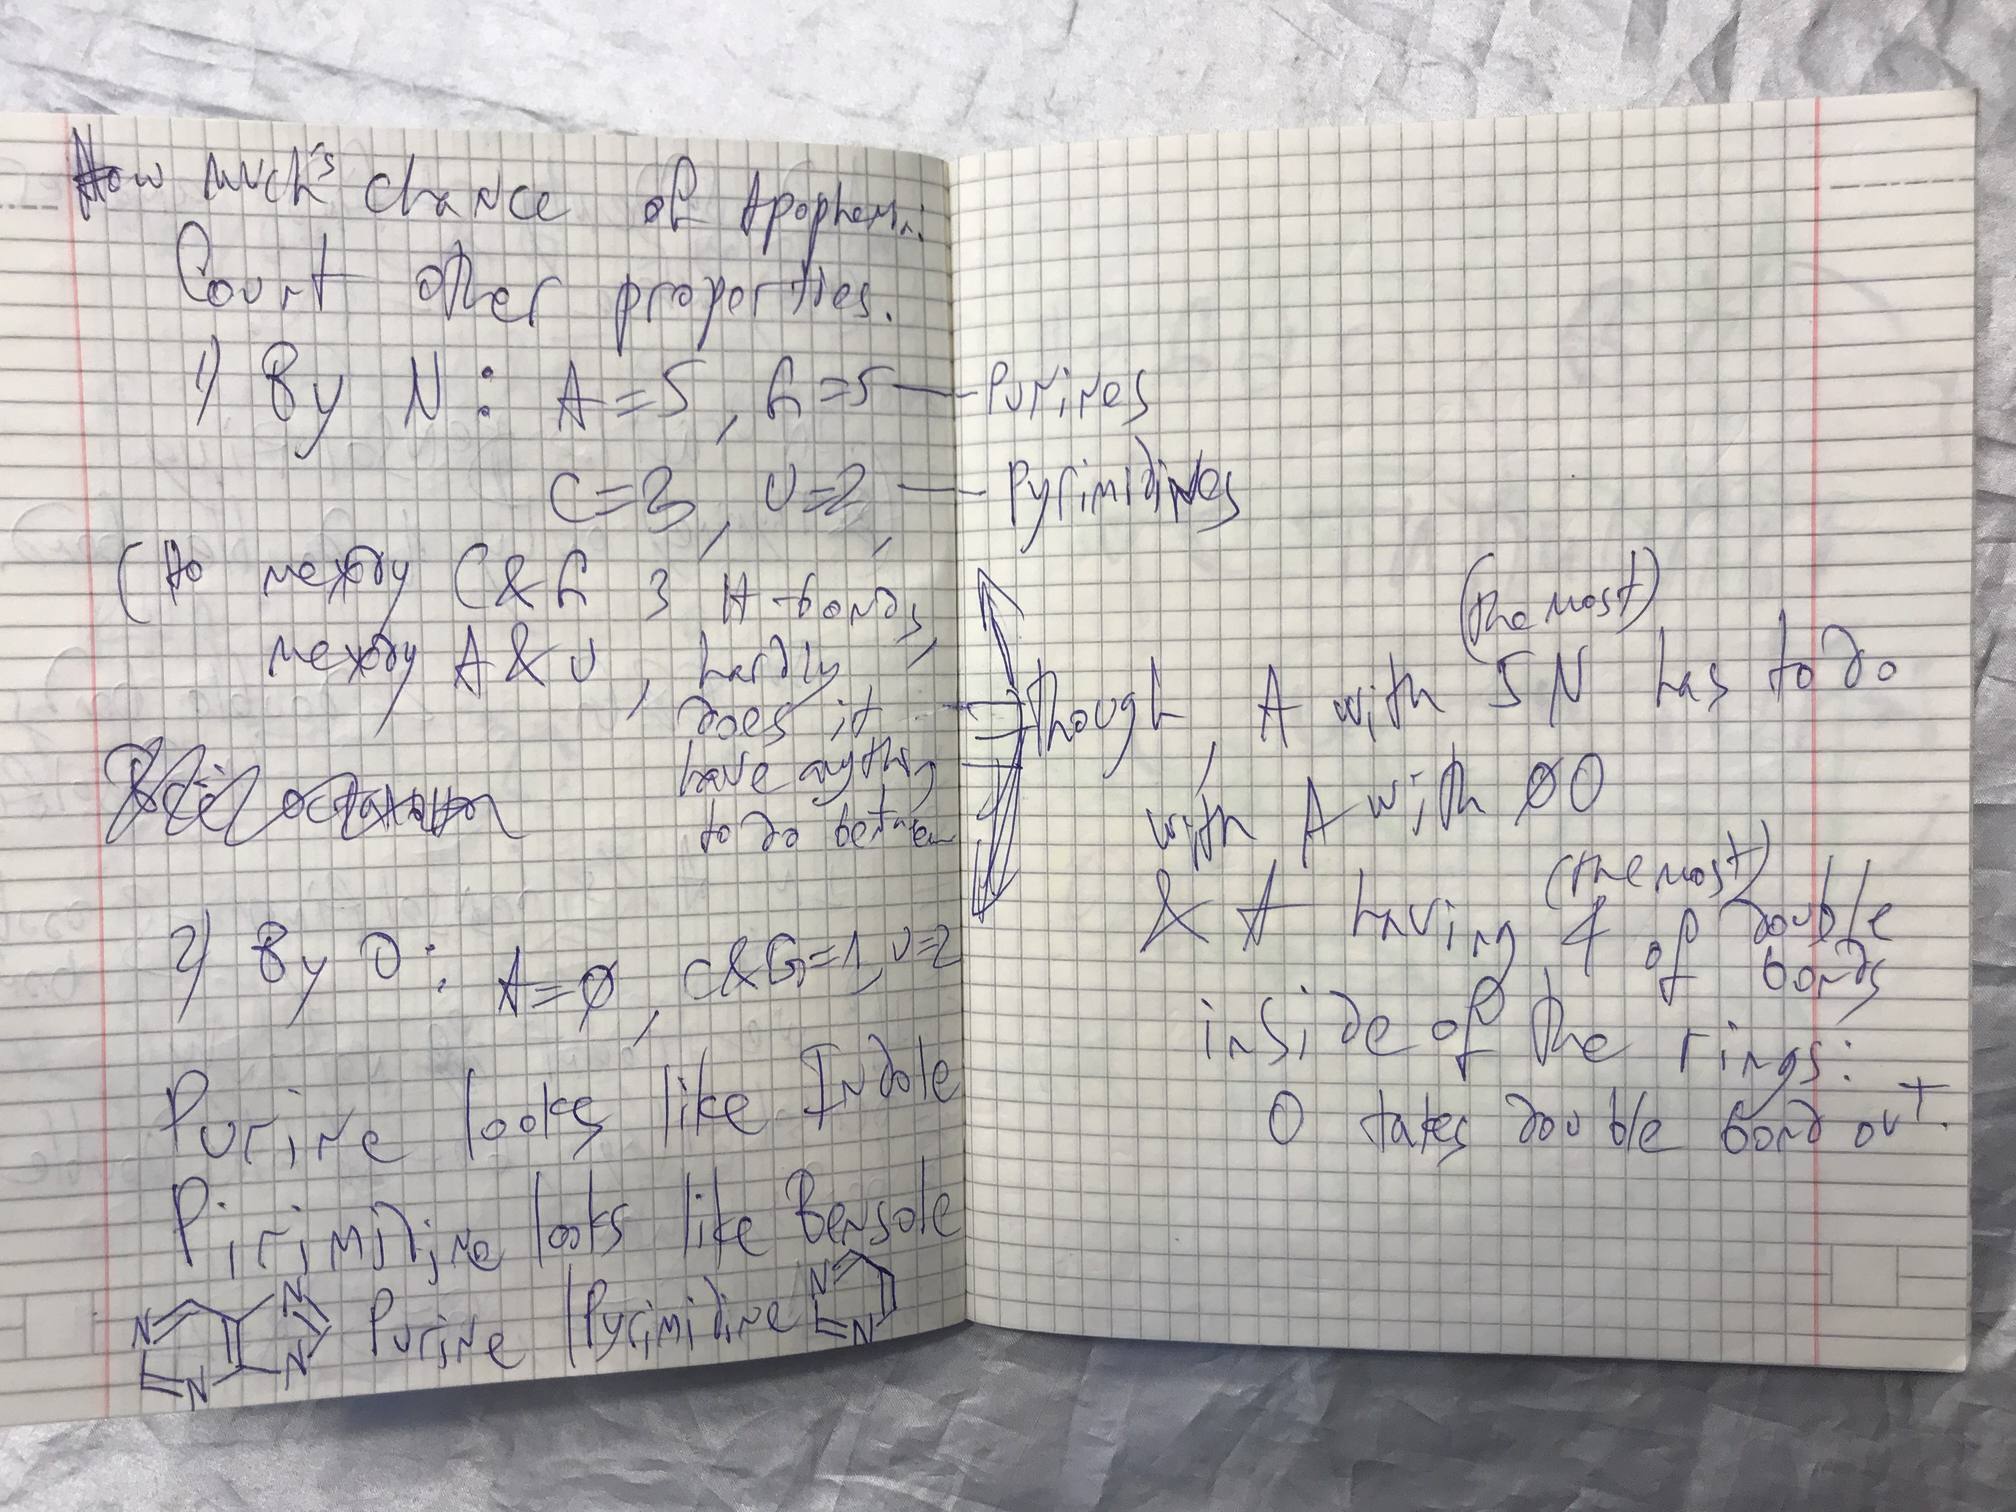 How much's chance of Apophen.:
Count other properties.
1) By N: A=5, G=5 — Purines
C=3, U=2, — Pyrimidines
(Но между C&G 3 H-bonds,
между A&U, hardly
does it
have anything
to do between
2) By O: A=0, C&G=1, U=2
Purine looks like Indole
Pirimidine looks like Bensole
N N N N Purine | Pyrimidine N N
(the most)
Though, A with 5 N has to do
with A with 0 O
(the most)
& A having 4 of double
bonds
inside of the rings:
O takes double bond out.